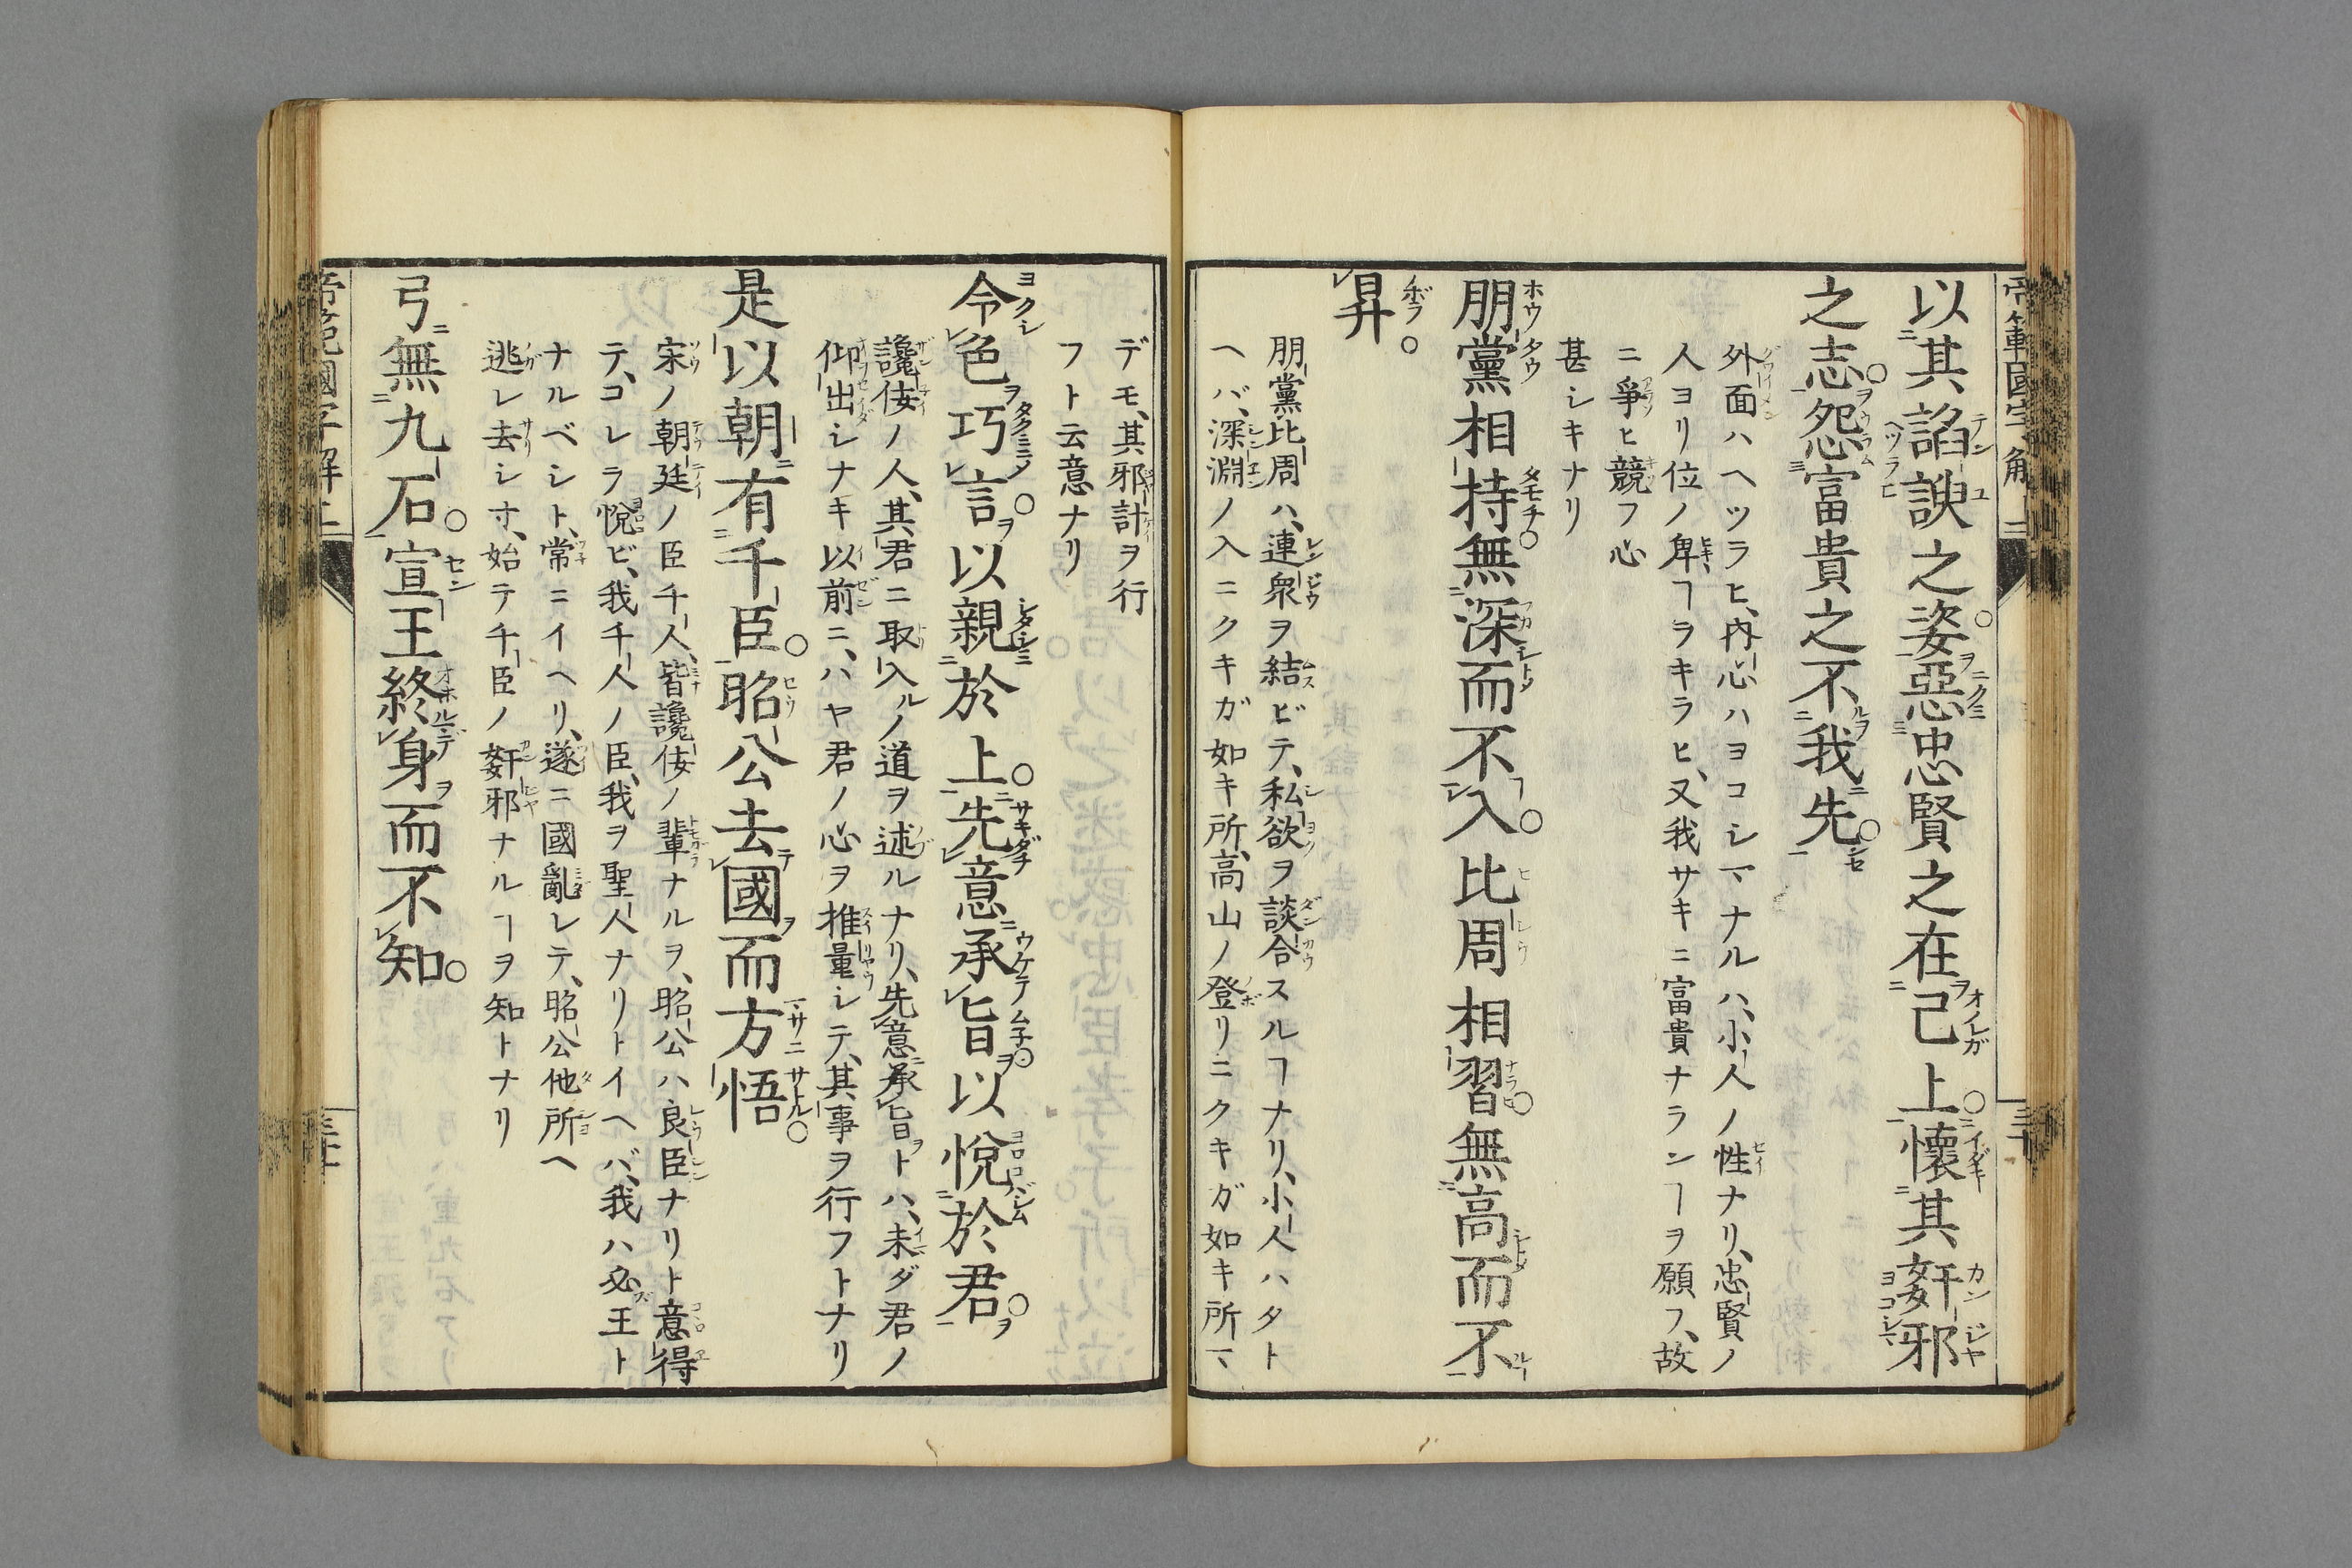 帝範國字解上
三十
以其諂諛之姿惡忠賢之在己上懷其姦邪
之志怨富貴之不我先
外面ハヘツラヒ、內心ハヨコシマナルハ、小人ノ性ナリ、忠賢ノ
人ヨリ位ノ卑ヿヲキラヒ、又我サキニ富貴ナランヿヲ願フ、故
ニ爭ヒ競フ心
甚シキナリ
朋黨相持無深而不入比周相習無高而不
昇
朋黨比周ハ、連衆ヲ結ビテ、私欲ヲ談合スルヿナリ、小人ハタト
ヘバ、深淵ノ入ニクキガ如キ所、高山ノ登リニクキガ如キ所マ
デモ、其邪計ヲ行
フト云意ナリ
令色巧言以親於上先意承旨以悅於君
讒佞ノ人、其君ニ取入ルノ道ヲ述ルナリ、先意承旨トハ、未ダ君ノ
仰出シナキ以前ニ、ハヤ君ノ心ヲ推量シテ、其事ヲ行フトナリ
是以朝有千臣昭公去國而方悟
宋ノ朝廷ノ臣千人、皆讒佞ノ輩ナルヲ、昭公ハ良臣ナリト意得
テ、コレラ悅ビ、我千人ノ臣、我ヲ聖人ナリトイヘバ、我ハ必王ト
ナルベシト、常ニイヘリ、遂ニ國亂レテ、昭公他所ヘ
逃レ去シ寸、始テ千臣ノ姦邪ナルヿヲ知トナリ
弓無九石宣王終身而不知
帝範國字解上
三十